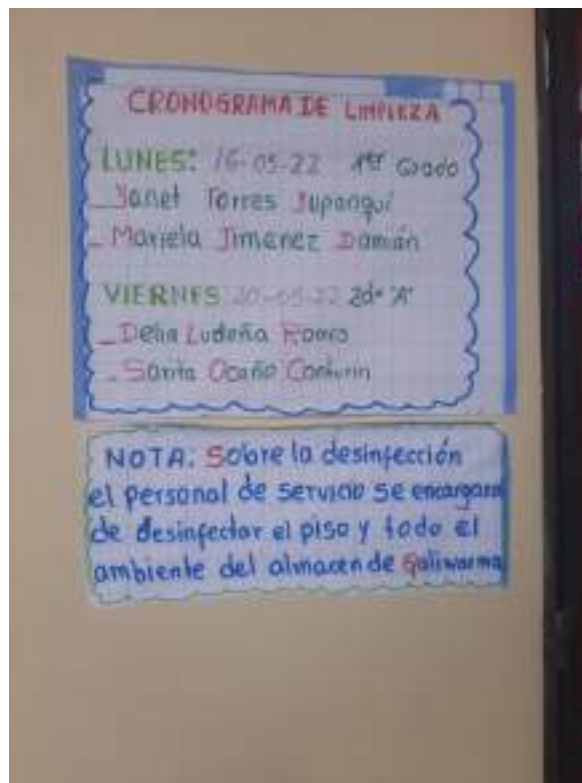 CRONOGRAMA DE LIMPIEZA
LUNES: 16-05-22 1er Grado
_ Yanet Torres Jupanqui
_ Mariela Jimenez Damián
VIERNES 20-05-22 2do "A"
_ Delia Ludeña
_ Sarita Ocaño
NOTA: Sobre la desinfección
el personal de servicio se encargara
de desinfectar el piso y todo el
ambiente del almacen de Qaliwarma